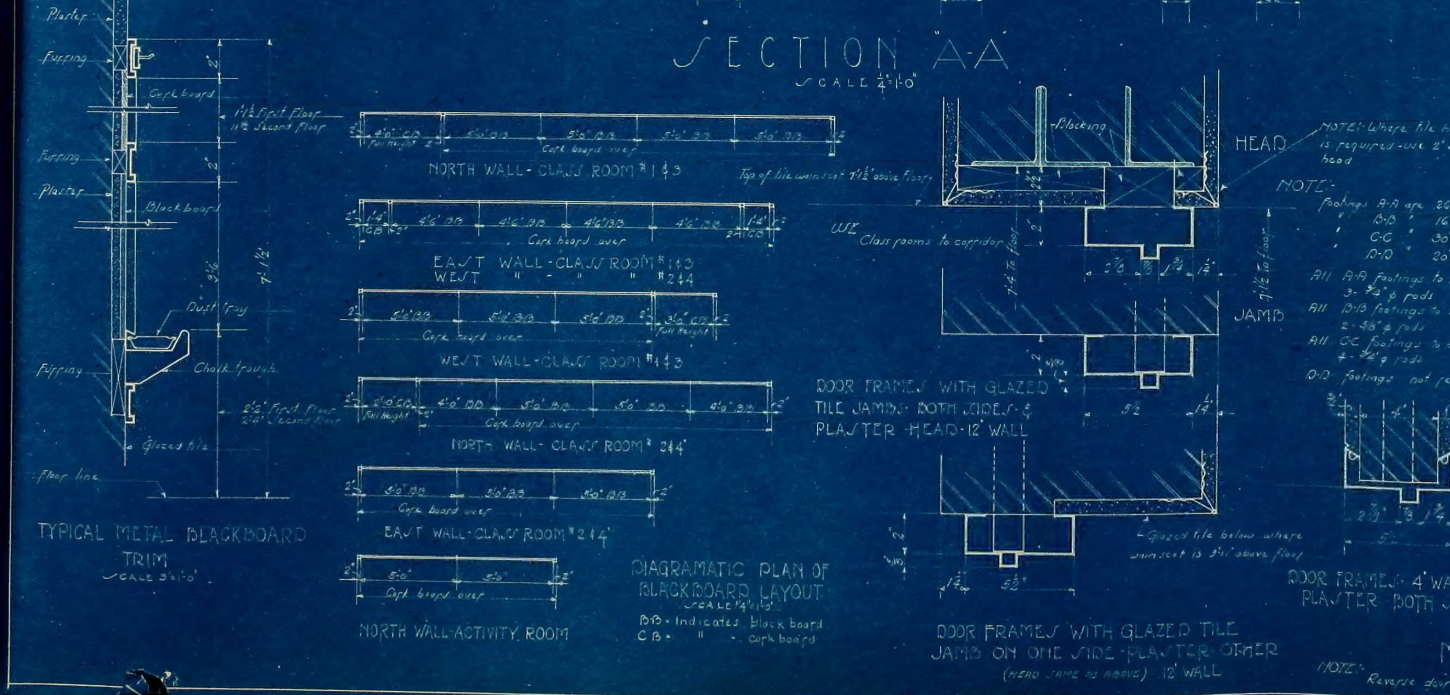 SECTION "A-A"
SCALE ¼"=1'-0"
Plaster
Furring
Cork board
Furring
Plaster
Blackboard
Dust tray
Furring
Chalk trough
Glazed tile
Floor line
2"
1'-1½ First Floor
11½ Second Floor
2"
3'-½"
7'-1½"
2'-2½" First Floor
Second Floor
TYPICAL METAL BLACKBOARD
TRIM
SCALE 3"=1'-0"
2" 4'-0" CB 5'-0" BB 5'-0" BB 5'-0" BB 5'-0" BB 2"
Full height 2"
Cork board over
NORTH WALL-CLASS ROOM #1&3
2" 1'-4" 4'-6" BB 4'-6" BB 4'-6" BB 4'-6" BB 1'-4" 2"
CB 2" 2" CB
Cork board over
EAST WALL-CLASS ROOM #1&3
WEST " - " " #2&4
2" 5'-0" BB 5'-0" BB 5'-0" BB 2" 3'-0" CB 2"
Full height
Cork board over
WEST WALL-CLASS ROOM #1&3
2" CB 4'-0" BB 5'-0" BB 5'-0" BB 4'-0" BB 2"
Full height
Cork board over
NORTH WALL-CLASS ROOM #2&4
2" 5'-0" BB 5'-0" BB 5'-0" BB 2"
Cork board over
EAST WALL-CLASS ROOM #2&4
2" 5'-0" 5'-0" 2"
Cork board over
NORTH WALL-ACTIVITY ROOM
DIAGRAMATIC PLAN OF
BLACKBOARD LAYOUT
SCALE ¼"=1'-0"
BB = Indicates black board
CB = " - cork board
Blocking
HEAD
Top of tile wainscot 7'-1½" above floor
USE
Class rooms to corridor
2½"
2"
7'-4 To floor
7'-1½ To floor
2⅞ ⅞ 1¾ 1¼"
JAMB
2"
⅝
5½ 1¼
DOOR FRAMES WITH GLAZED
TILE JAMBS-BOTH SIDES-&
PLASTER-HEAD-12" WALL
2"
⅝
1¼" 5½"
Glazed tile below where
wainscot is above floor
DOOR FRAMES WITH GLAZED TILE
JAMB ON ONE SIDE-PLASTER OTHER
(HEAD SAME AS ABOVE) 12" WALL
NOTE: Where tile
is required-use 2"
head
NOTE:-
Footings A-A are
" B-B " 16
" C-C " 30
D-D " 20
All A-A footings to
3-¾" φ rods
All B-B footings to
2-⅝" φ rods
All C-C footings to
4-¾" φ rods
D-D footings not
4"
1¾
5½
DOOR FRAMES-4" WA
PLASTER BOTH
NOTE:-
Reverse door